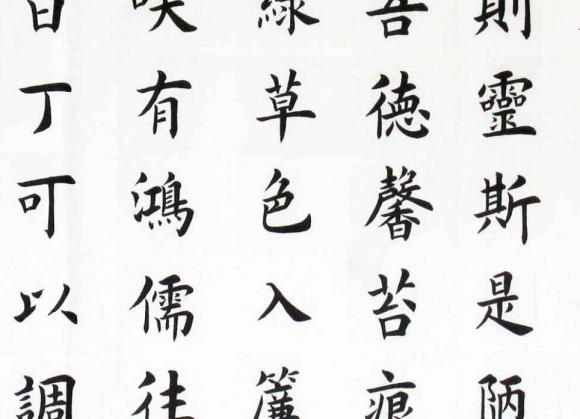 則靈斯是陋
吾徳馨苔痕
綠草色入簾
咲有鴻儒往
白丁可以調